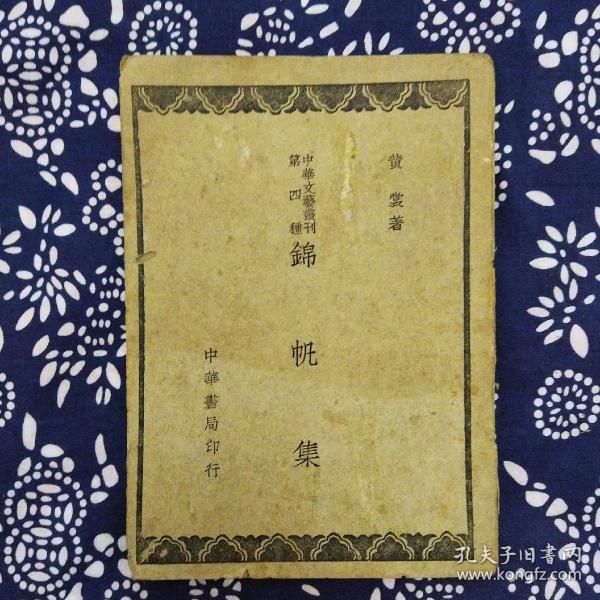 黄裳著
中華文藝叢刊
第四種
錦帆集
中華書局印行
孔夫子旧书网
www.kongfz.com